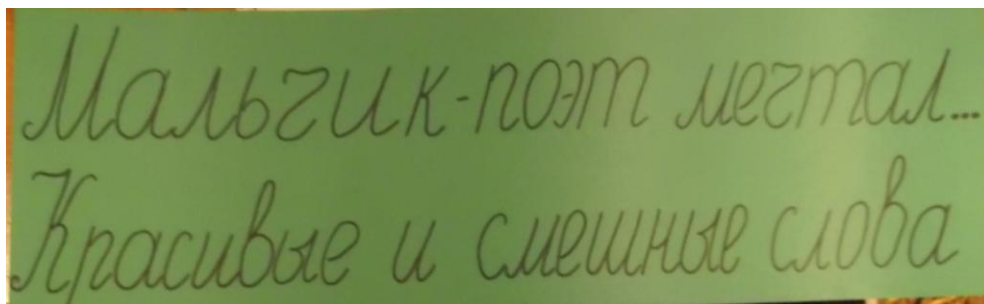 Мальчик-поэт мечтал...
Красивые и смешные слова